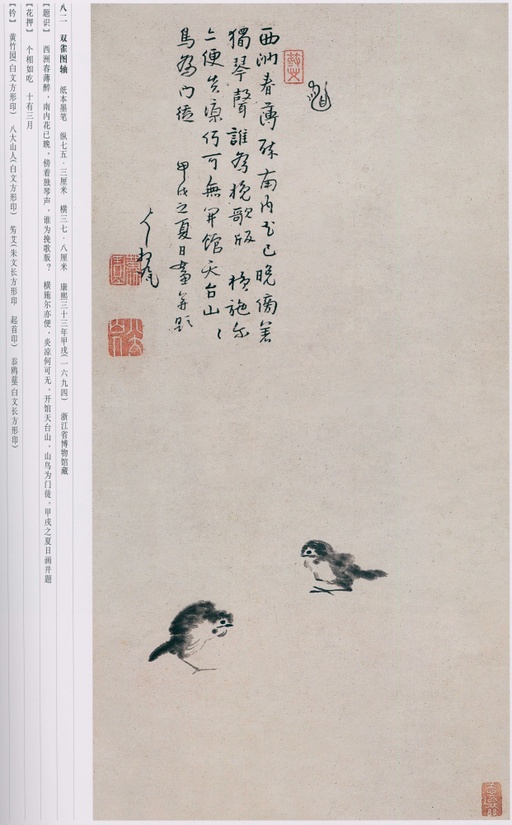 西洲春薄醉南内花已晚傍著
獨琴聲誰為挽歌版 橫施尔
亦便炎凉何可無開館天台山山
鳥為门徒 甲戌之夏日畫并題
八二 双雀图轴 纸本墨笔 纵七五·三厘米 横三七·八厘米 康熙三十三年甲戌(一六九四) 浙江省博物馆藏
【题识】 西洲春薄醉，南内花已晚，傍着独琴声，谁为挽歌版？ 横施尔亦便，炎凉何可无，开馆天台山，山鸟为门徒。甲戌之夏日画并题
【花押】 个相如吃 十有三月
【钤】 黄竹园(白文方形印) 八大山人(白文方形印) 艿艾(朱文长方形印 起首印) 忝鸥草(白文长方形印)